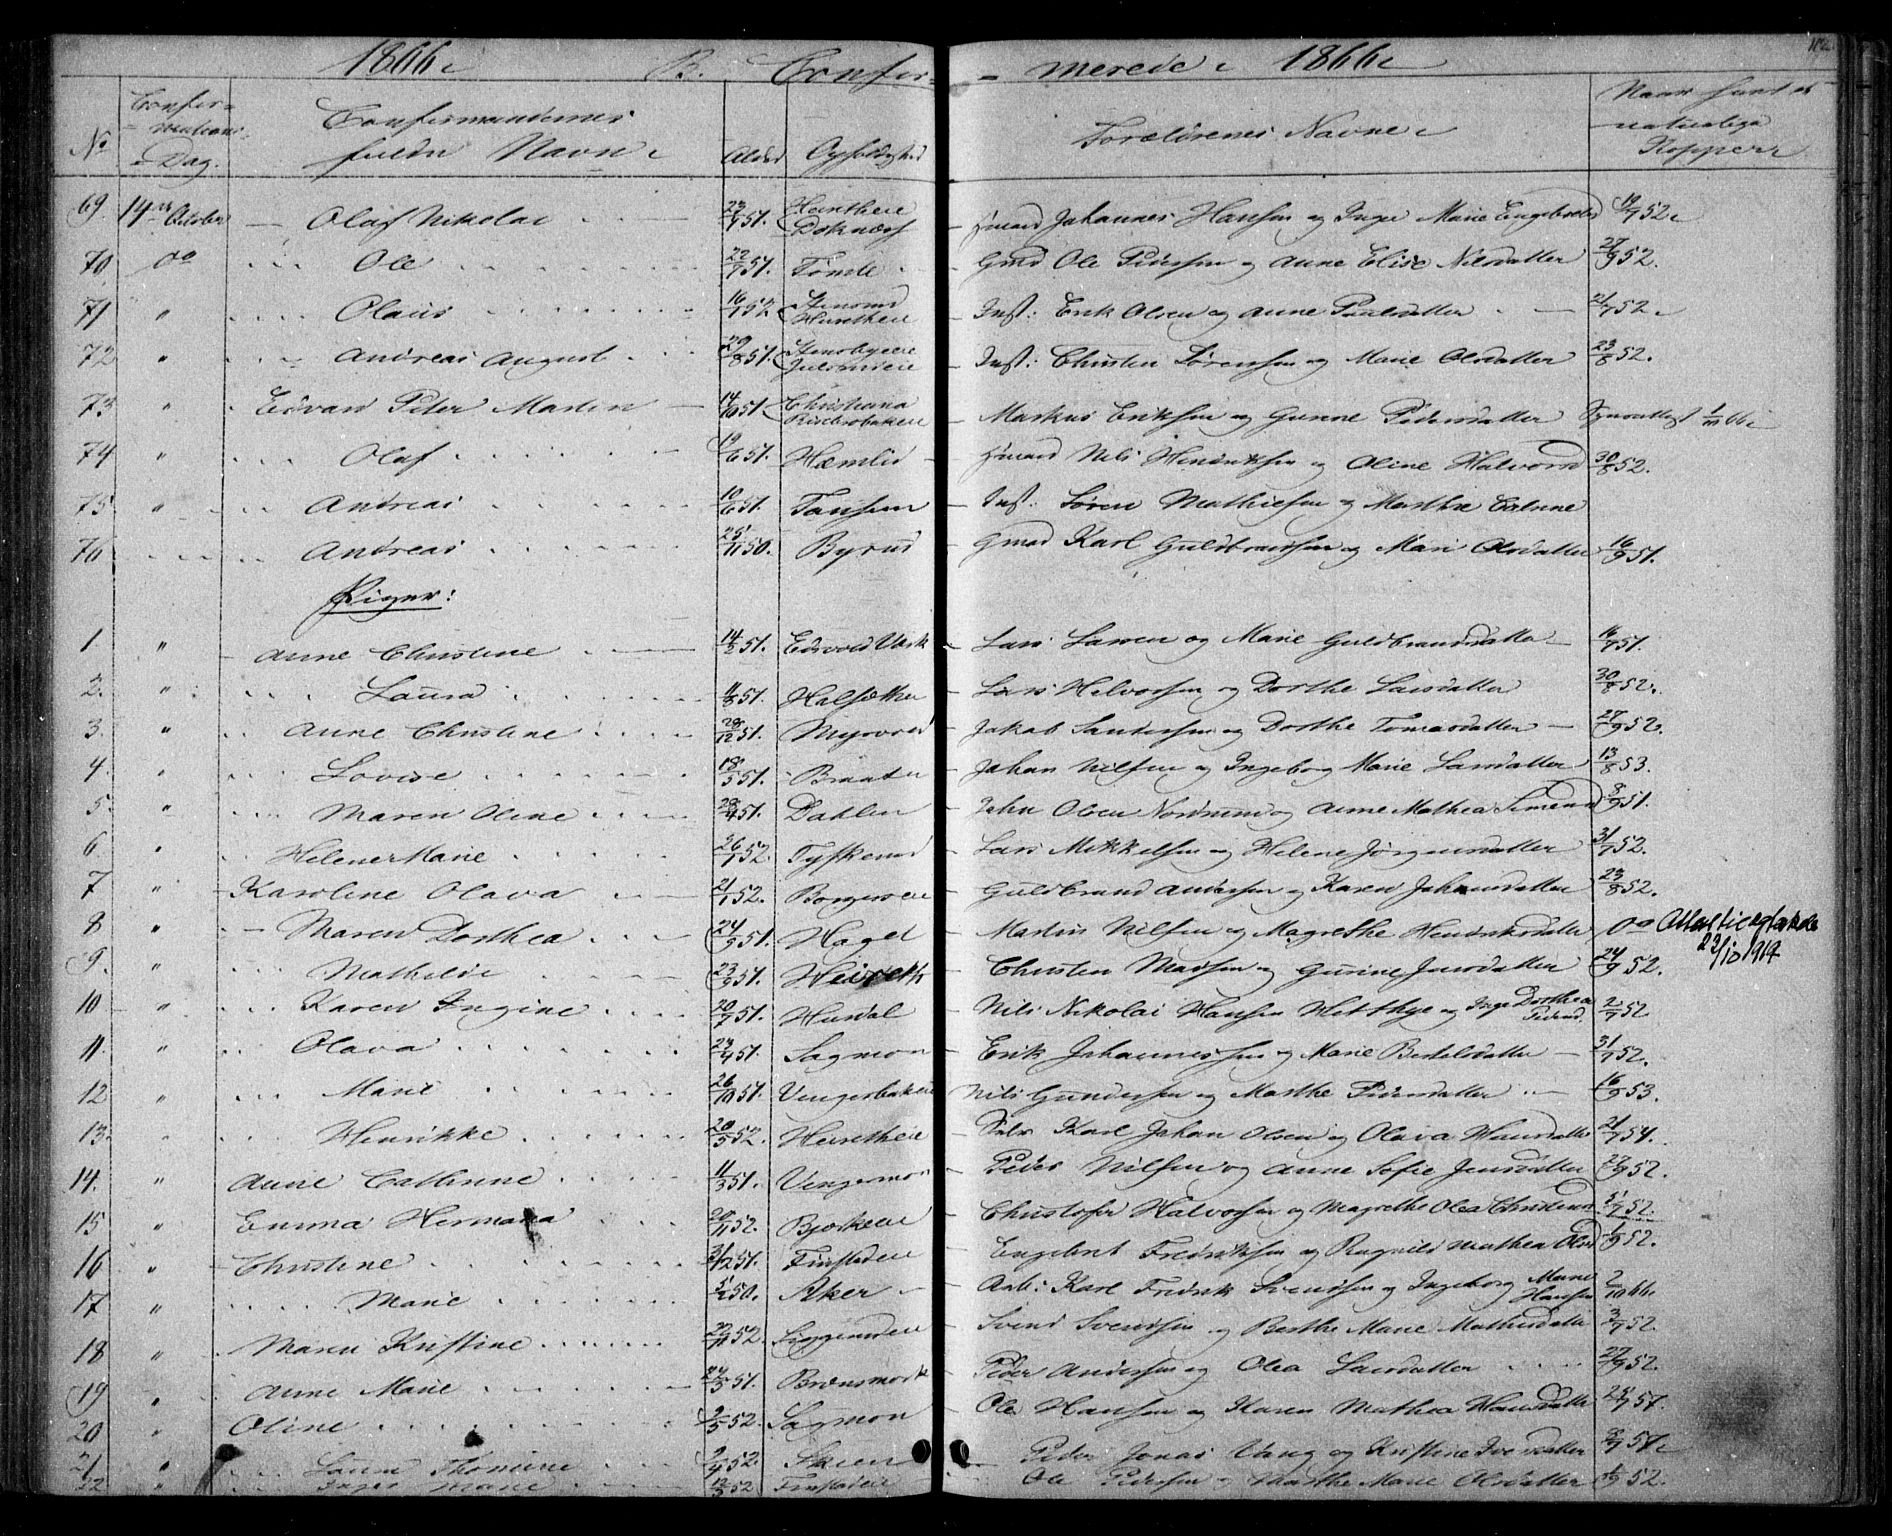 1866. B. Confir- merede. 1866.
No Confirmations Dag. Confirmandernes fulde Navn. Alder Opholdssted Forældrenes Navne. Naar havt de naturlige Kopper
69. 14de October Olaf Nikolai 23/9 51. Johannes Hansen og Inger Marie Engebretsd 19/7 52.
70. do Ole 22/7 51. Tømte Gmd Ole Pedersen og Anne Elise Nilsdatter 27/9 52.
71 " Olaus 16/1 52 Inst: Erik Olsen og Anne Paulsdatter 21/7 52.
72 " Andreas August 29/8 51. Inst: Christen Sørensen og Marie Olsdatter 23/8 52.
73 " Edvard Peter Martin 14/10 51. Christiania Markus Eriksen og Gunne Pedersdatter
74 " Olaf 19/6 51. Hæmlid Nils Hendriksen og Oline Halvorsd 30/8 52.
75 " Andreas 10/6 51. Inst: Søren Mathiesen og Marthe
76 Andreas 25/11 50. Byrud Gmd Karl Guldbrandsen og Mari Olsdatter 16/9 51.
Piger:
1 " Anne Christine 14/2 51. Edsvold Værk Lars Larsen og Marie Guldbrandsdatter 16/9 51.
2. " Laura 11/8 51. Halsæther Lars Halvorsen og Dorthe Larsdatter 30/8 52.
3. " Anne Christine 28/12 51. Myrvold Jakob Sandersen og Dorthe Tomasdatter 27/9 52.
4. " Lovise 18/5 51. Braaten Johan Nilsen og Ingeborg Marie Larsdatter 13/8 53.
5. " Maren Oline 28/4 51. Dahlen John Olsen Nordrum og Anne Mathea Simensd 8/9 51.
6. " Helene Marie 26/1 52. Tyskerud Lars Mikkelsen og Helene Jørgensdatter 31/7 52.
7 " Karoline Olava 21/1 52. Guldbrand Andersen og Karen Johansdatter 23/8 52.
8 " Maren Dorthea 24/9 51. Haget Martin Nilsen og Magrethe Hendriksdatter do 23/10 1914
9. " Mathilde 23/9 51. Christen Madsen og Gurine Jensdatter 24/9 52.
10 " Karen Ingine 20/7 51. Husdal Nils Nikolai Hansen og Inger Dorthea Pedersd. 2/7 52
11. " Olava 23/4 51. Sagmoen Erik Johannessen og Marie Bertelsdatter 31/7 52.
12 " Marie 26/10 51. Vengerbakken Nils Gundersen og Marthe Pedersdatter 16/9 53.
13. " Henrikke 20/5 52. Karl Johan Olsen og Olava Hansdatter 21/7 54.
14. " Anne Cathrine 11/3 51. Vengermoen Peder Nilsen og Anne Sofie Jensdatter 27/9 52.
15 " Emma Hermana 20/11 52. Bjerkeeie Christofer Halvorsen og Magrethe Olea Christensd 5/7 52.
16 " Christine 31/12 51. Finstadeie Engebret Fredriksen og Ragnild Mathea Olsd 1/9 52.
17 " Marie 5/2 50. Aker Arb: Karl Fredrik Svendsen og Ingeborg Marie Hansen 2/10 66.
18 " Maren Kristine 52. Svend Svendsen og Berthe Marie Mathisdatter 3/7 52.
19 " Anne Marie 24/3 51. Peder Andersen og Olea Larsdatter 27/9 52.
20 " Oline 2/5 52. Sagmoen Ole Hansen og Karen Mathea Hansdatter 25/7 57.
21 " Laura Thomine 2/4 52. Skien Peder Jonas Vang og Kristine Iversdatter 57.
22 " Inger Marie 12/3 52 Finstadeie Ole Pedersen og Marthe Marie Olsdatter 52.